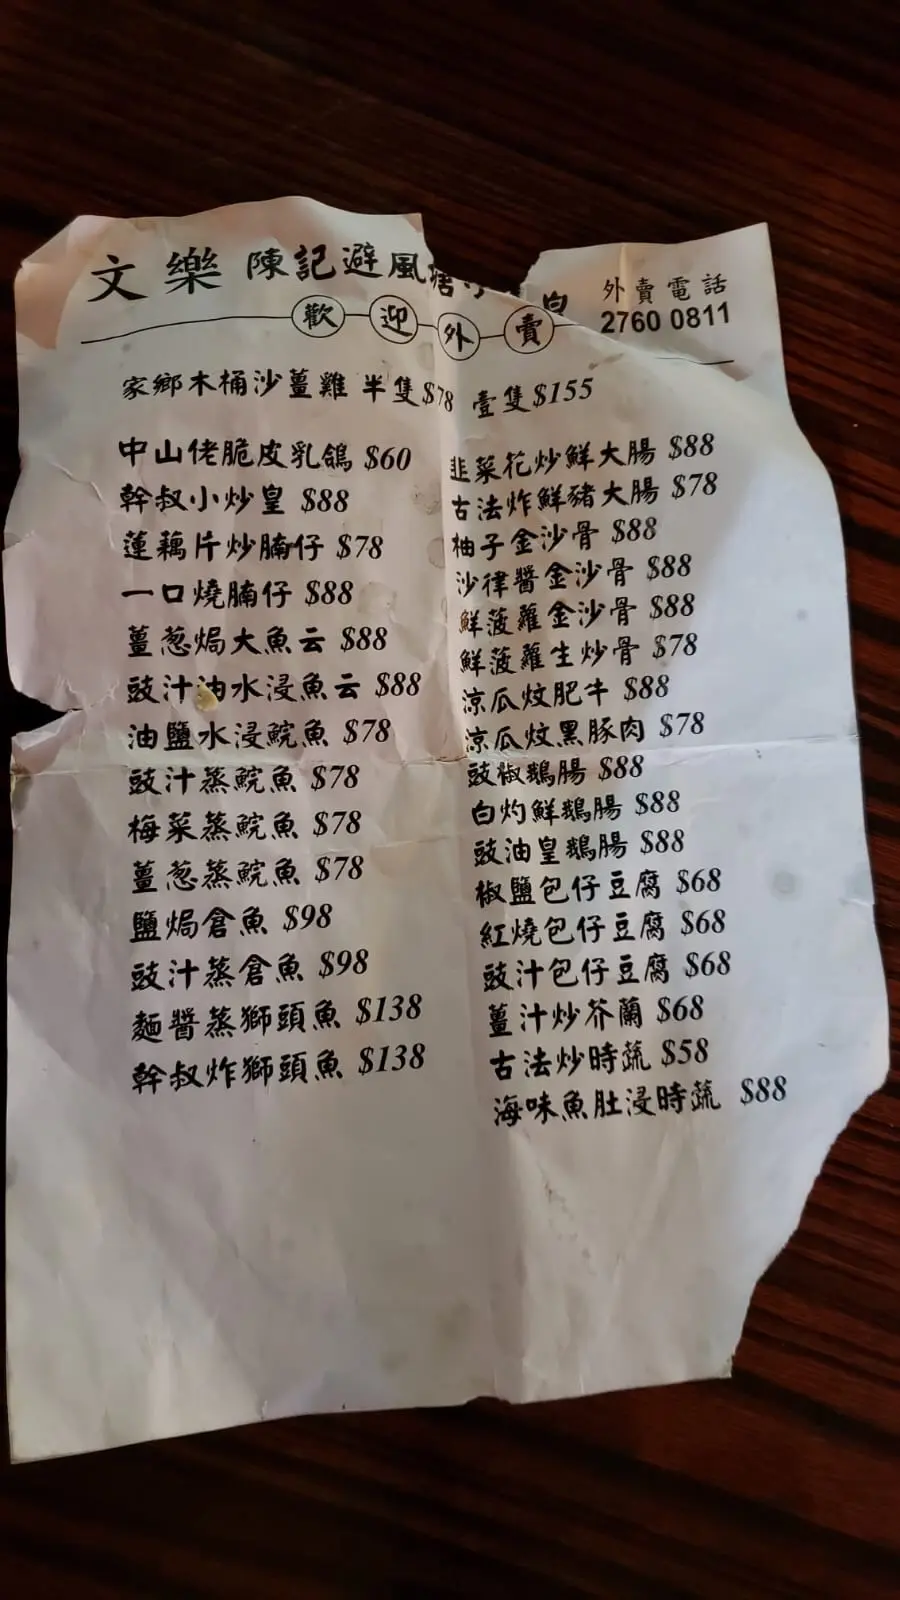 文樂 陳記避風塘
外賣電話
2760 0811
歡迎外賣
家鄉木桶沙薑雞 半隻$78 壹隻$155
中山佬脆皮乳鴿 $60
幹叔小炒皇 $88
蓮藕片炒腩仔 $78
一口燒腩仔 $88
薑葱焗大魚云 $88
豉汁油水浸魚云 $88
油鹽水浸鯇魚 $78
豉汁蒸鯇魚 $78
梅菜蒸鯇魚 $78
薑葱蒸鯇魚 $78
鹽焗倉魚 $98
豉汁蒸倉魚 $98
麵醬蒸獅頭魚 $138
幹叔炸獅頭魚 $138
韭菜花炒鮮大腸 $88
古法炸鮮豬大腸 $78
柚子金沙骨 $88
沙律醬金沙骨 $88
鮮菠蘿金沙骨 $88
鮮菠蘿生炒骨 $78
涼瓜炆肥牛 $88
涼瓜炆黑豚肉 $78
豉椒鵝腸 $88
白灼鮮鵝腸 $88
豉油皇鵝腸 $88
椒鹽包仔豆腐 $68
紅燒包仔豆腐 $68
豉汁包仔豆腐 $68
薑汁炒芥蘭 $68
古法炒時蔬 $58
海味魚肚浸時蔬 $88